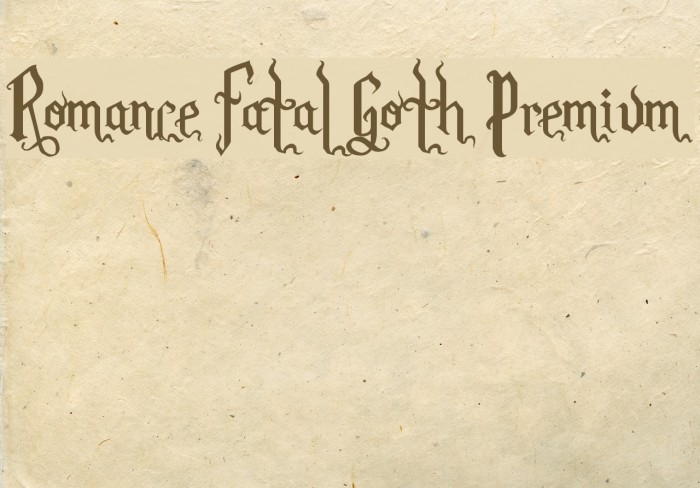 Romance Fatal Goth Premium